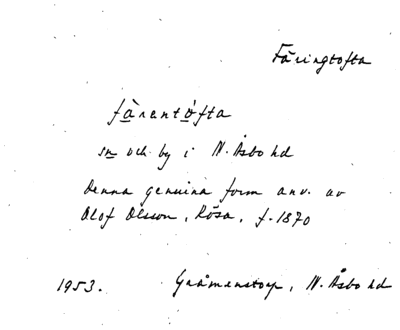 Färingtofta
fàrentófta
sn och by i N. Åsbo hd
denna genuina form anv. av
Olof Olsson, Rösa, f. 1870
1953. Gråmanstorp, N. Åsbo hd